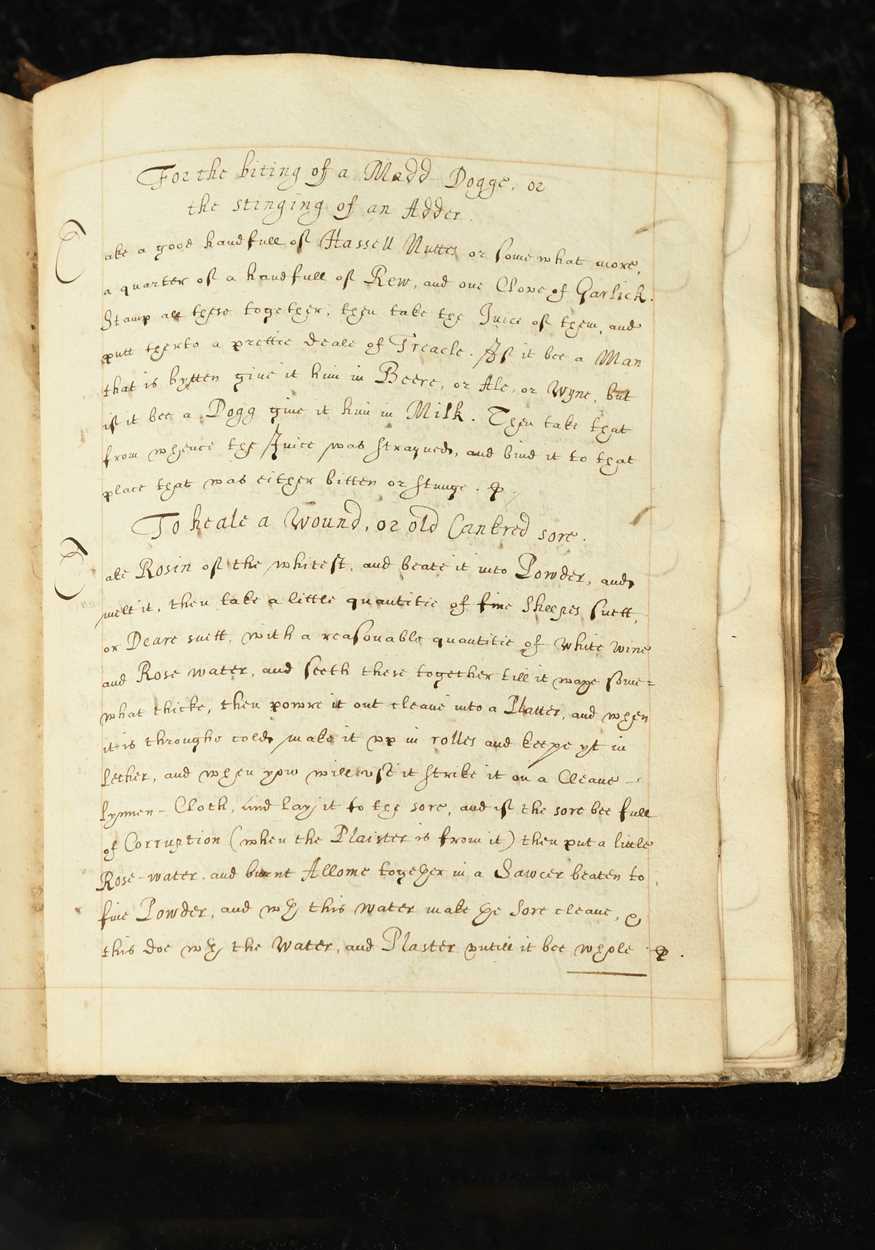 For the biting of a Madd Dogge, or
the stinging of an Adder.
Take a good handfull of Hassell Nuttes or some what more,
a quarter of a handfull of Rew, and one Clove of Garlick.
Stamp all these together, then take the Juice of them, and
putt therto a prettie deale of Treacle. If it bee a Man
that is bytten give it him in Beere, or Ale, or Wyne, but
if it bee a Dogg give it him in Milk. Then take that
from whence the Juice was strayned, and bind it to that
place that was either bitten or stunge.
To heale a Wound, or old Cankred sore.
Take Rosin of the whitest, and beate it into Powder, and
melt it, then take a little quantitie of fine Sheepes suett,
or Deare suett, with a reasonable quantitie of white wine
and Rose water, and seeth these together till it waxe some=
what thicke, then powre it out cleane into a Platter, and when
it is throughe cold, make it up in rolles and keepe yt in
Lether, and when yow will use it strike it on a Cleane -
lynnen - Cloth, and lay it to the sore, and if the sore bee full
of Corruption (when the Plaister is from it) then put a little
Rose-water, and burnt Allome together in a Sawcer beaten to
fine Powder, and wth this water make the sore cleane, &
this doe wth the Water, and Plaster untill it bee whole